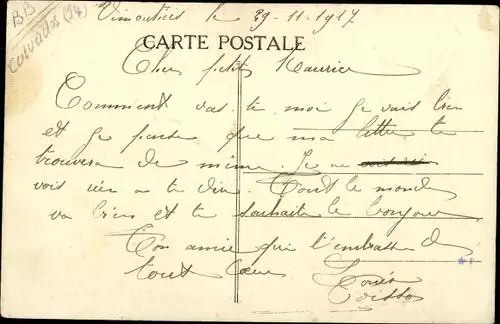 BB
Calvados (14)
Vimoutiers le 29-11-1917
CARTE POSTALE
Cher petit Maurice
Comment vas-tu moi je vais bien
et je pense que ma lettre te
trouvera de même. Je ne
vois rien a te dire. Tout le monde
va bien et te souhaite le bonjour
Ton amie qui t'embrasse de
tout cœur
Louis